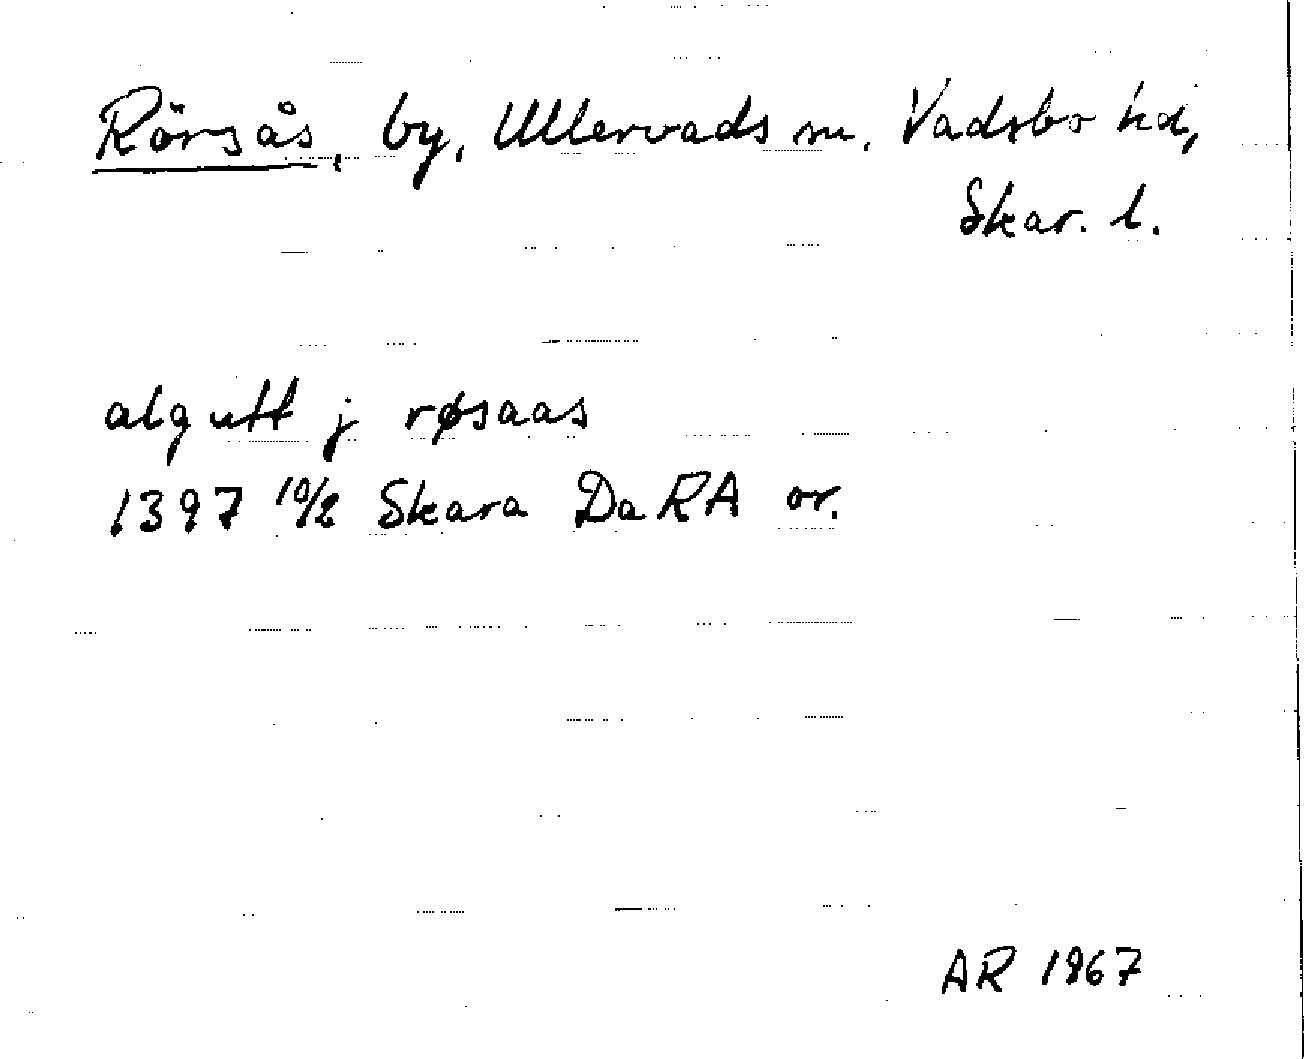 Rörsås, by, Ullervads sn, Vadsbo hd,
Skar. l.
algutt j røsaas
1397 10/2 Skara DaRA or.
AR 1967